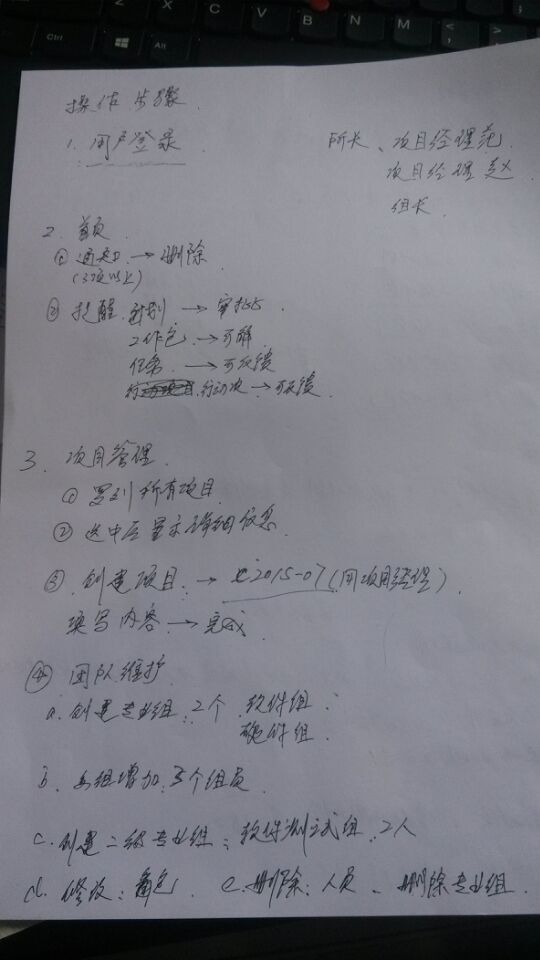 Ctrl
Alt
操作步骤
1. 用户登录
所长、项目经理范
项目经理赵
组长
2. 首页
① 通知 → 删除
(3项以上)
② 提醒. 计划 → 审批
工作包 → 可解
任务 → 可反馈
行动项 → 可反馈
3. 项目管理
① 罗列所有项目
② 选中后显示详细信息
③ 创建项目 → C2015-07(用项目经理)
填写内容 → 完成
④ 团队维护
a. 创建专业组: 2个 软件组
硬件组
b. 每组增加3个组员
c. 创建二级专业组: 软件测试组: 2人
d. 修改: 角色 e. 删除: 人员、删除专业组